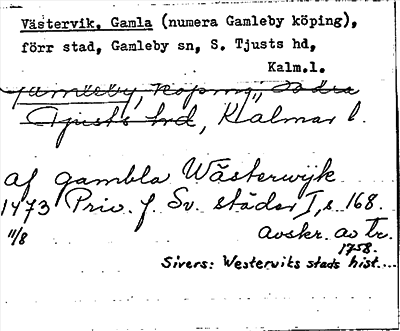 Västervik, Gamla (numera Gamleby köping),
förr stad, Gamleby sn, S. Tjusts hd,
Kalm.l.
Gamleby, köping, Södra
Tjusts hrd, Kalmar l.
af gambla Wästerwijk
1473 Priv. f. Sv. städer I, s. 168.
11/8 avskr. av tr.
1758.
Sivers: Westerviks stads hist....